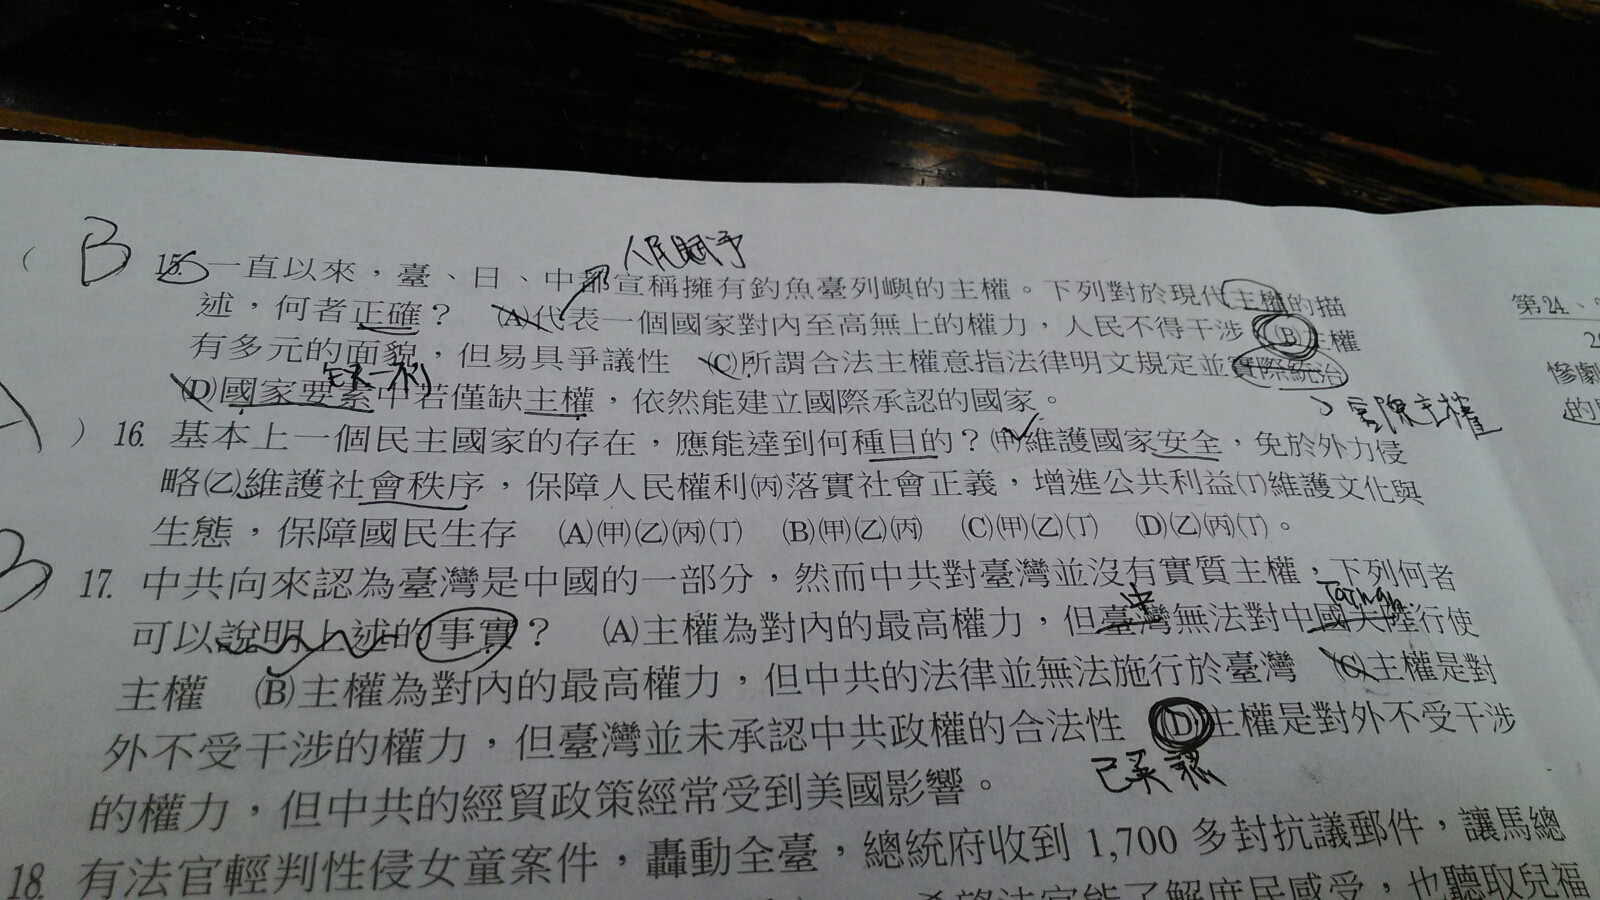 人民賦予
( B 15. 一直以來，臺、日、中都宣稱擁有釣魚臺列嶼的主權。下列對於現代主權的描
述，何者正確？ (A)代表一個國家對內至高無上的權力，人民不得干涉 (B)主權
有多元的面貌，但易具爭議性 (C)所謂合法主權意指法律明文規定並實際統治
缺一不可
(D)國家要素中若僅缺主權，依然能建立國際承認的國家。
實際主權
A ) 16. 基本上一個民主國家的存在，應能達到何種目的？(甲)維護國家安全，免於外力侵
略(乙)維護社會秩序，保障人民權利(丙)落實社會正義，增進公共利益(丁)維護文化與
生態，保障國民生存 (A)(甲)(乙)(丙)(丁) (B)(甲)(乙)(丙) (C)(甲)(乙)(丁) (D)(乙)(丙)(丁)。
B 17. 中共向來認為臺灣是中國的一部分，然而中共對臺灣並沒有實質主權，下列何者
中 Taiwan
可以說明上述的事實？ (A)主權為對內的最高權力，但臺灣無法對中國大陸行使
主權 (B)主權為對內的最高權力，但中共的法律並無法施行於臺灣 (C)主權是對
外不受干涉的權力，但臺灣並未承認中共政權的合法性 (D)主權是對外不受干涉
已承認
的權力，但中共的經貿政策經常受到美國影響。
18. 有法官輕判性侵女童案件，轟動全臺，總統府收到 1,700 多封抗議郵件，讓馬總
希望法官能了解庶民感受，也聽取兒福
第24、
慘劇
的